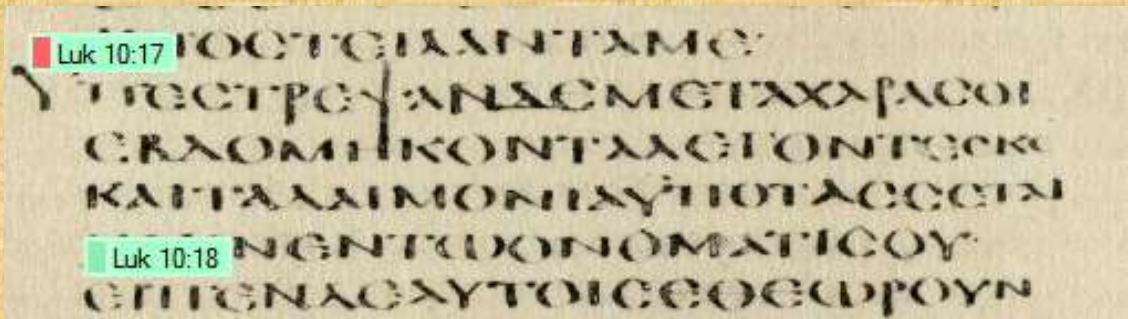 Luk 10:17 ΠΟCΤΕΙΛΑΝΤΑΜΕ
ΥΠΕCΤΡΕΨΑΝΔΕΜΕΤΑΧΑΡΑCΟΙ
ΕΒΔΟΜΗΚΟΝΤΑΛΕΓΟΝΤΕCΚΕ
ΚΑΙΤΑΔΑΙΜΟΝΙΑΫΠΟΤΑCCΕΤΑΙ
Luk 10:18 ΝΕΝΤΩΟΝΟΜΑΤΙCΟΥ
ΕΙΠΕΝΔΕΑΥΤΟΙCΕΘΕΩΡΟΥΝ